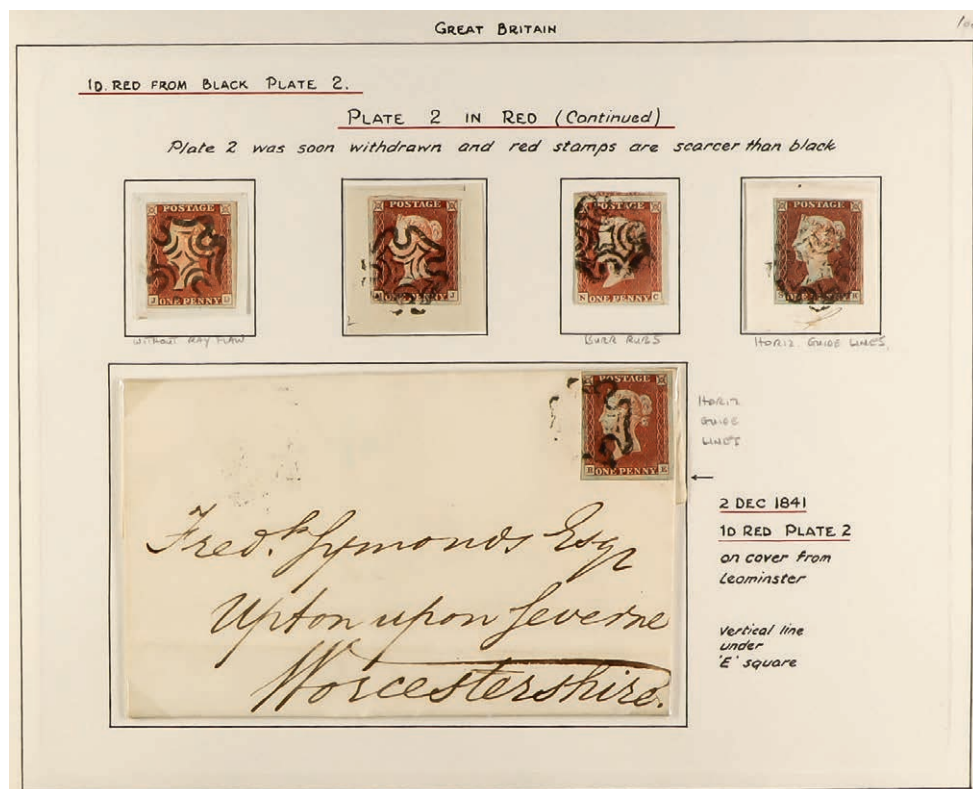 GREAT BRITAIN
1D. RED FROM BLACK PLATE 2.
PLATE 2 IN RED (Continued)
Plate 2 was soon withdrawn and red stamps are scarcer than black
POSTAGE
J D
ONE PENNY
WITHOUT RAY FLAW
POSTAGE
J
ONE PENNY
2
POSTAGE
N C
ONE PENNY
BURR RUBS
POSTAGE
PENNY
HORIZ. GUIDE LINES.
POSTAGE
E
ONE PENNY
HORIZ
GUIDE
LINES
Fredk. Symonds Esqr
Upton upon Severne
Worcestershire.
2 DEC 1841
1D RED PLATE 2
on cover from
Leominster
vertical line
under
'E' square